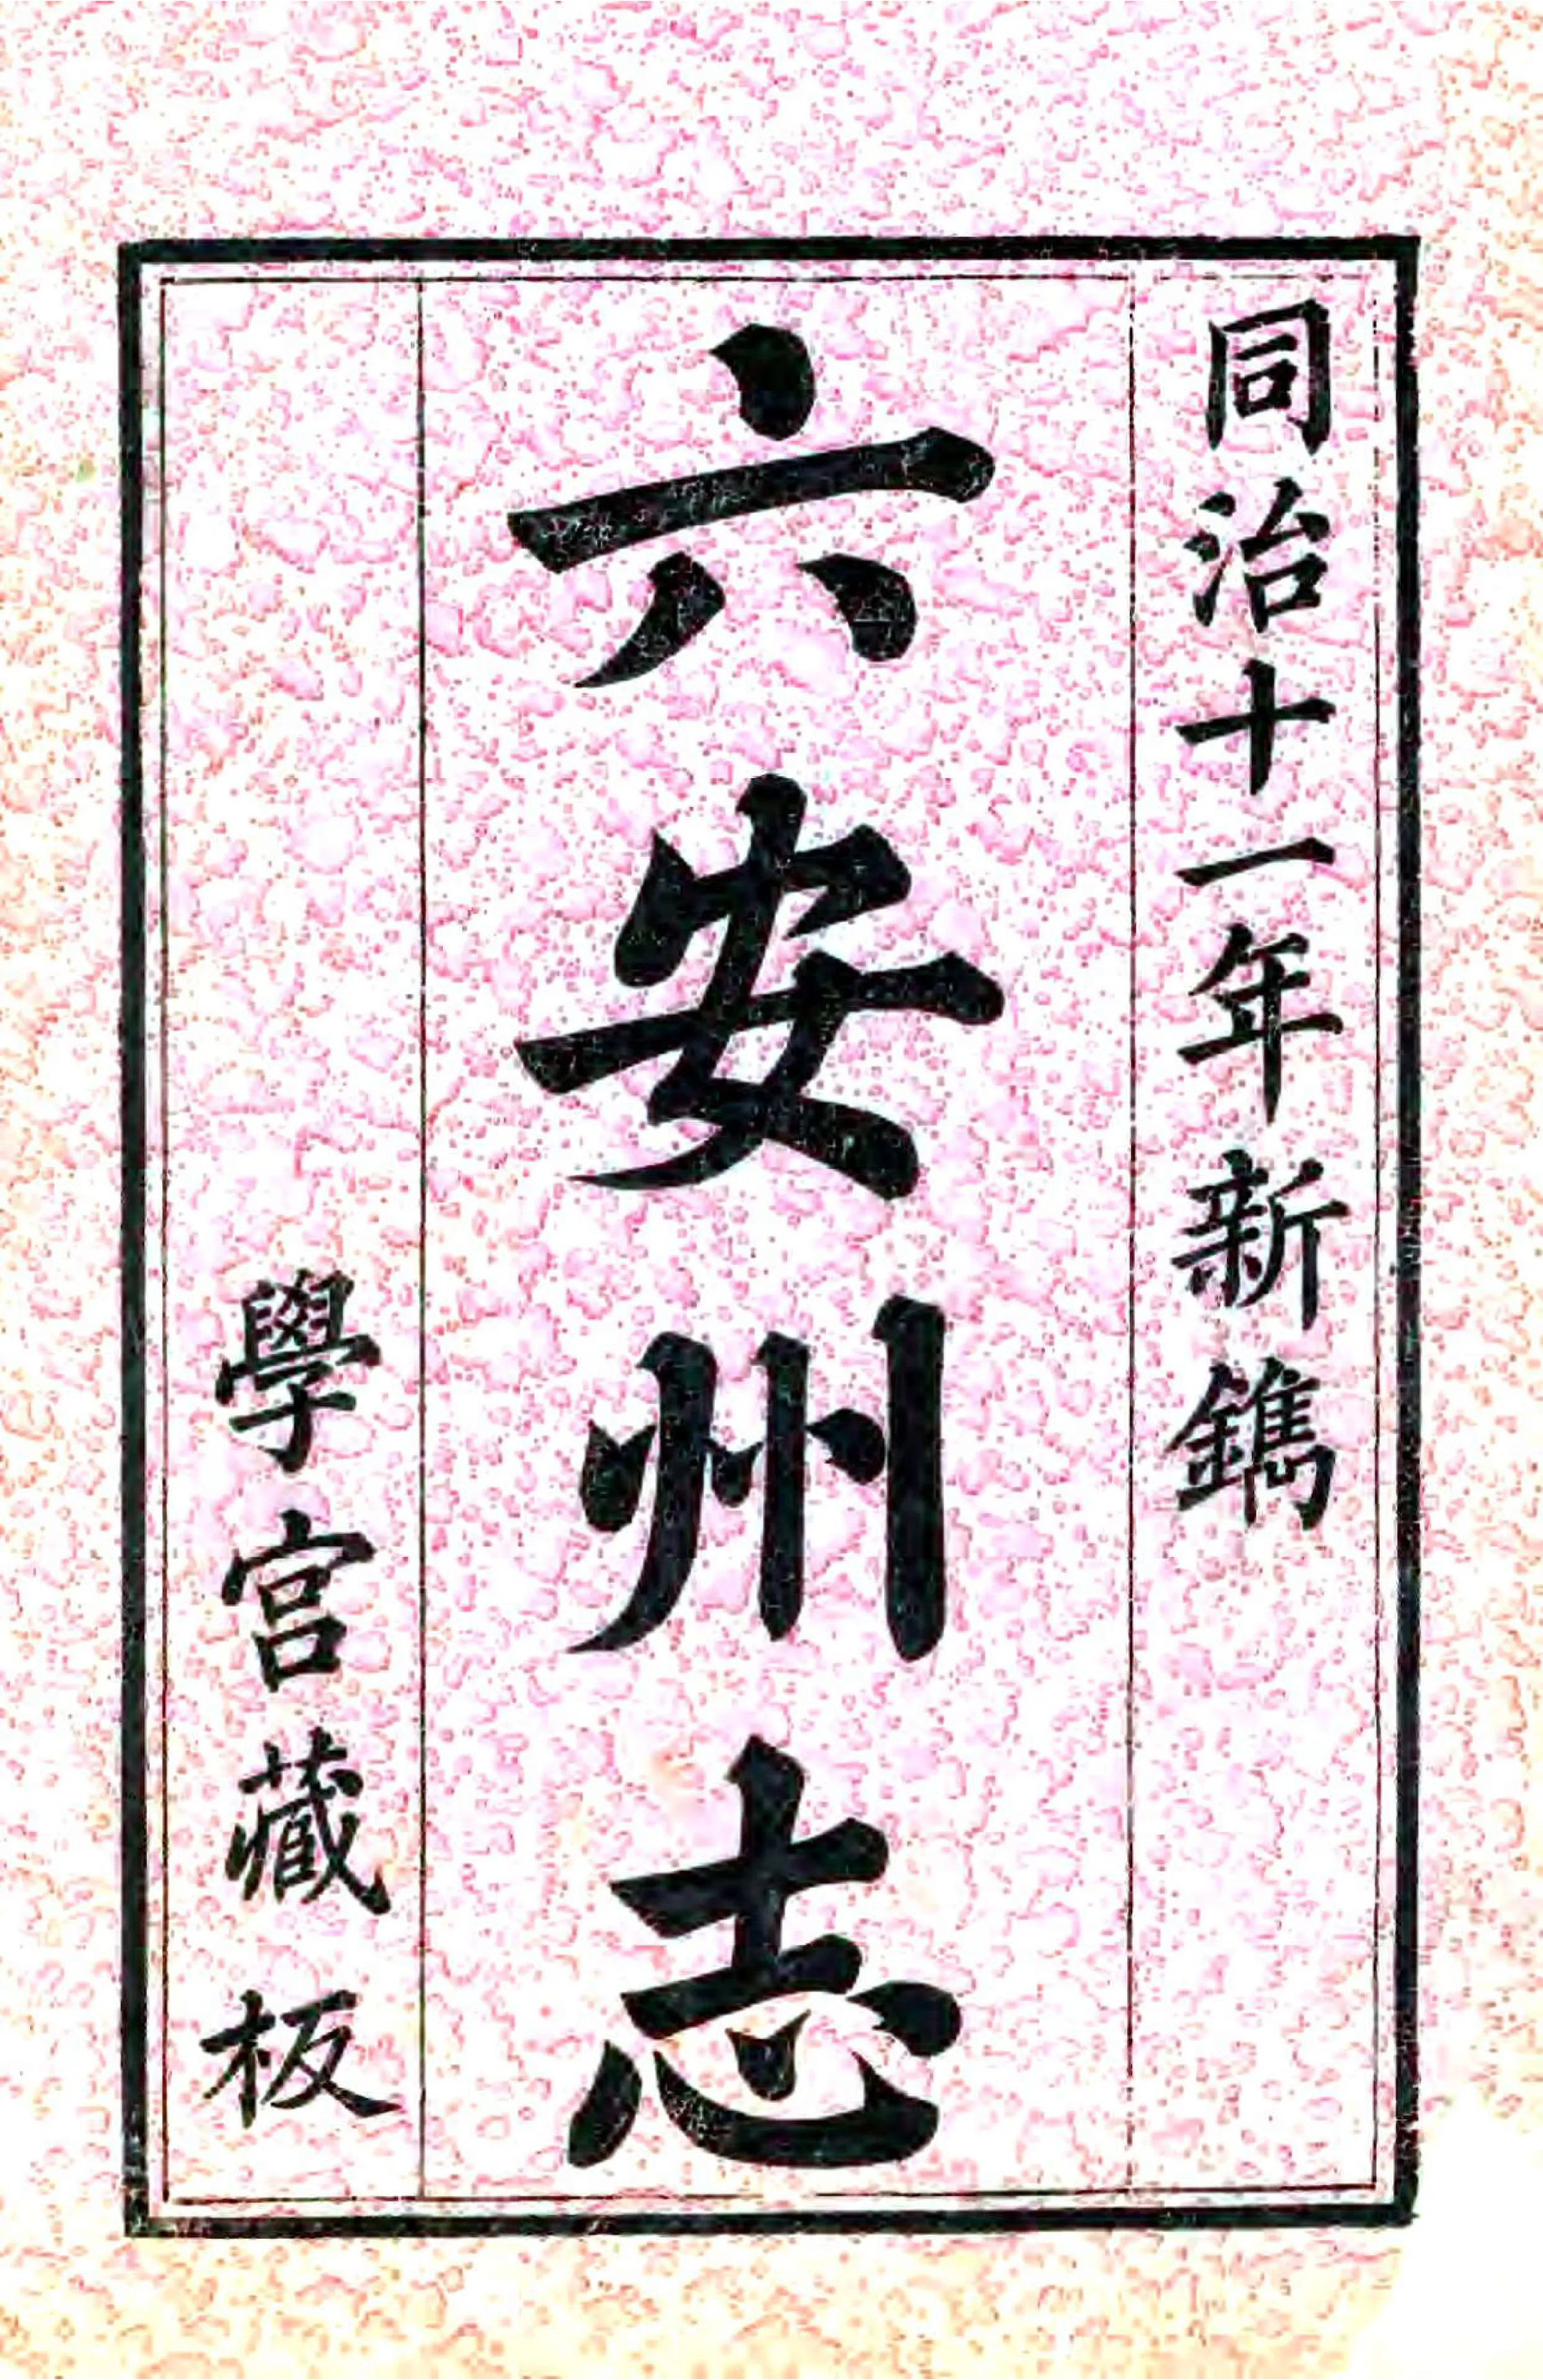 同治十一年新鐫
六安州志
學宮藏板